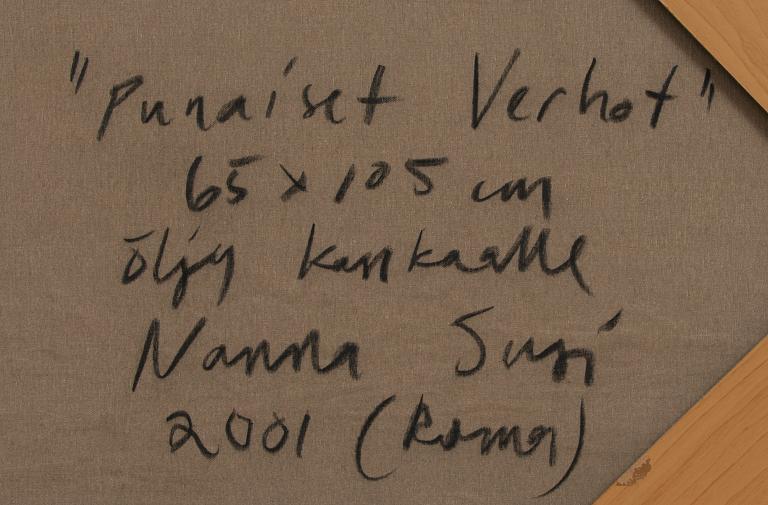 "Punaiset Verhot"
65 x 105 cm
öljy kankaalle
Nanna Susi
2001 (Roma)